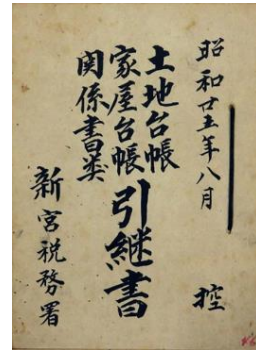 昭和廿五年八月
控
土地台帳
家屋台帳
関係書类
引継書
新宮税務署